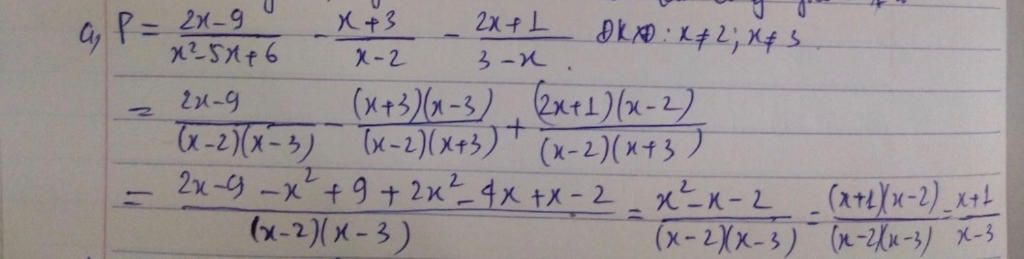 a, P = (2x-9)/(x²-5x+6) - (x+3)/(x-2) - (2x+1)/(3-x). ĐKXĐ: x≠2; x≠3
= (2x-9)/((x-2)(x-3)) - ((x+3)(x-3))/((x-2)(x+3)) + ((2x+1)(x-2))/((x-2)(x+3))
= (2x-9-x²+9+2x²-4x+x-2)/((x-2)(x-3)) = (x²-x-2)/((x-2)(x-3)) = ((x+1)(x-2))/((x-2)(x-3)) = (x+1)/(x-3)